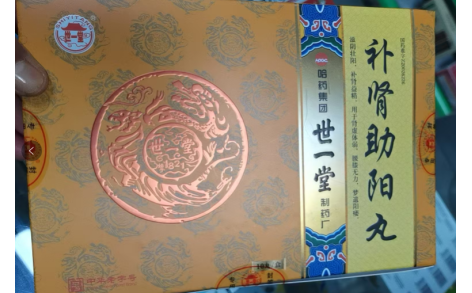 SHIYITANG
补肾助阳丸
滋阴壮阳,补肾益精。用于肾虚体弱,腰膝无力,梦遗阳痿
哈药集团
世一堂
制药厂
中华老字号